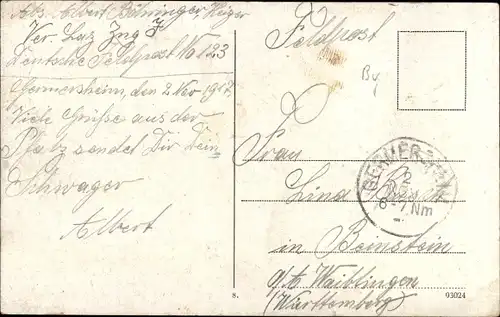 Abs. Albert Böhringer
Ver. Laz. Zug
Deutsche Feldpost No 123
Germersheim, den 2 Nov 1917.
Viele Grüsse aus der
Pfalz sendet Dir Dein
Schwager
Albert
Feldpost
By
Frau
Lina
in Beinstein
o/a Waiblingen
(Württemberg)
GERMER
2
8-7Nm
8.
93024